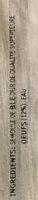 INGREDIENTS: SEMOULE DE BLE DUR DE QUALITE SUPERIEURE
OEUFS (12%), EAU